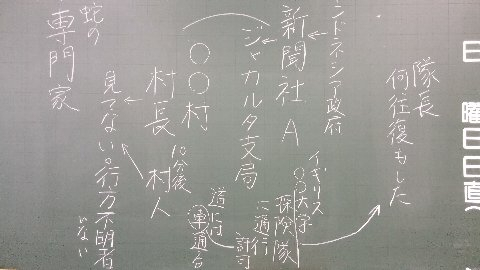 日　曜日　日直
隊長
何往復もした
ンドネシア政府
イギリス
○○大学
探険隊
に通行
許可
新聞社A
ジャカルタ支局
道には
車通る
○○村
村長　村人
10分後
見てない。行方不明者
いない
蛇の
専門家